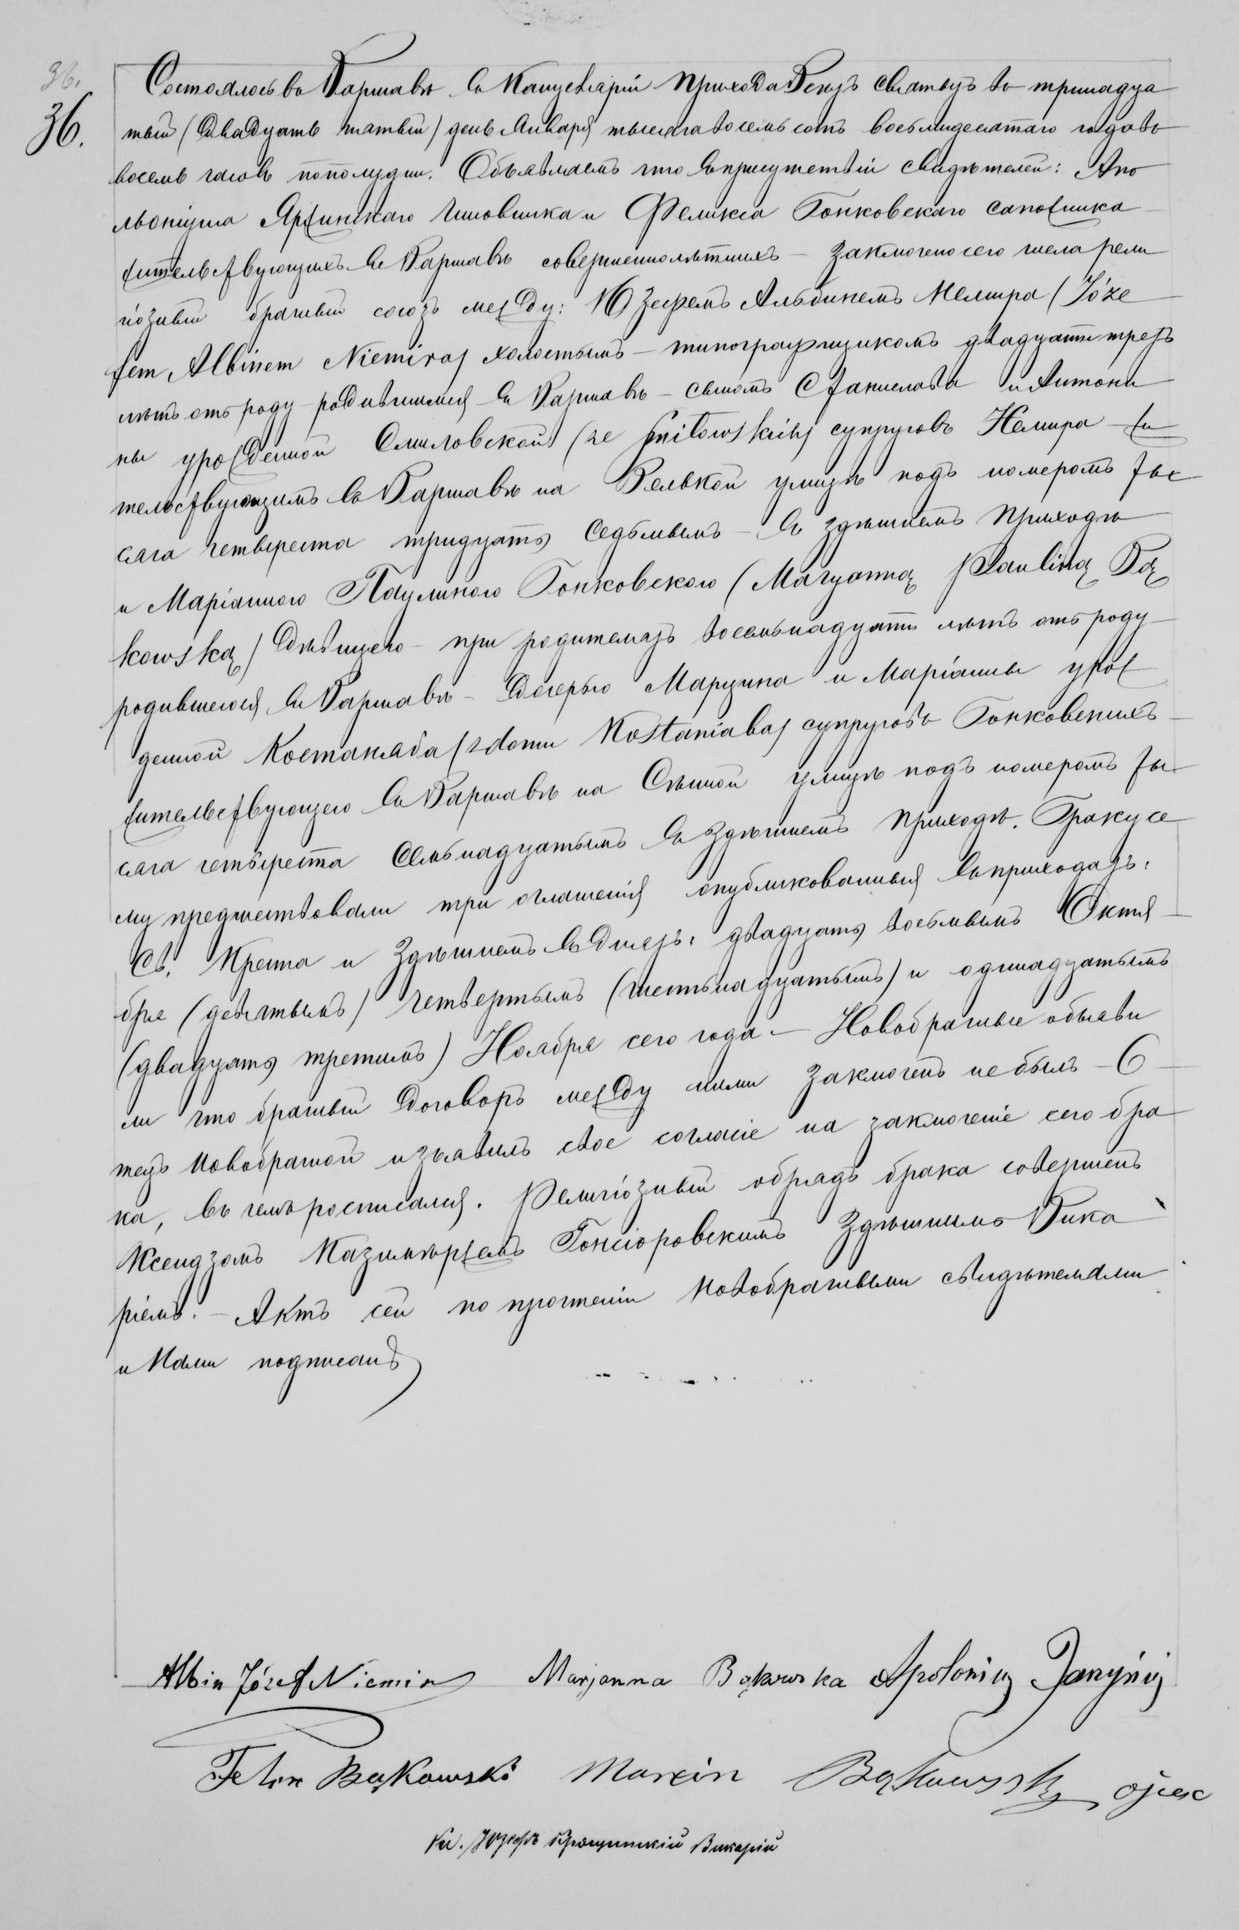 36.
36.
Состоялось въ Варшавѣ въ Канцеляріи Прихода Всѣхъ Святыхъ въ тринадца
тый (двадцать пятый) день Января тысяча восемьсотъ восьмидесятаго года въ
восемь часовъ пополудни. Объявляемъ что въ присутствіи свидѣтелей: Апо
льонiуша Чиновника и Феликса Бонковскаго сапожника
жительствующихъ въ Варшавѣ совершеннолѣтнихъ – заключено сего числа рели
гіозный брачный союзъ между: Юзефемъ Альбинемъ Немира (Józe
fem Albinem Niemirą) холостымъ – типографщикомъ двадцати трехъ
лѣтъ отъ роду родившимся въ Варшавѣ – сыномъ Станислава и Антони
ны урожденной Смиловской (ze Smiłowskich) супруговъ Немира – жи
тельствующимъ въ Варшавѣ на Велькой улицѣ подъ номеромъ ты
сяча четыреста тридцать седьмымъ – въ здѣшнемъ Приходѣ
и Маріанною Паулиною Бонковскою (Maryanną Pauliną Bą
kowską) дѣвицею – при родителяхъ восемьнадцати лѣтъ отъ роду
родившеюся въ Варшавѣ – дочерью Марцина и Маріанны урож
денной Костаняба (z domu Kostaniaba) супруговъ Бонковскихъ
жительствующею въ Варшавѣ на Сѣнной улицѣ подъ номеромъ ты
сяча четыреста семьнадцатымъ въ здѣшнемъ Приходѣ. Браку се
му предшествовали три оглашенія опубликованныя въ приходахъ:
Св. Креста и Здѣшнемъ въ дняхъ: двадцать восьмымъ Октя
бря (девятымъ) четвертымъ (шестьнадцатымъ) и одинадцатымъ
(двадцать третимъ) Ноября сего года. – Новобрачные объяви
ли что брачный договоръ между ними заключенъ не былъ – О
тецъ Новобрачной изъявилъ свое согласіе на заключеніе сего бра
ка, въ чемъ росписался. Религіозный обрядъ брака совершенъ
Ксендзомъ Казимѣржемъ Гонсіоровскимъ Здѣшнимъ Вика
ріемъ. – Актъ сей по прочтеніи Новобрачными свидѣтелями
и Нами подписанъ
Albin Józef Niemira Marjanna Bąkowska Apoloniusz
Felix Bąkowski Marcin Bąkowski ojciec
Кс. Юзефъ Викарій